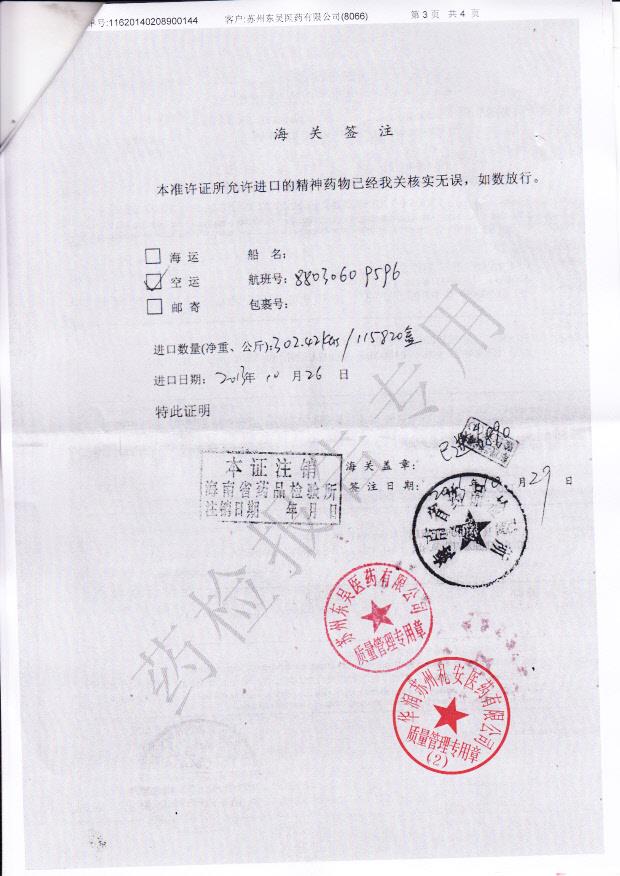 号:11620140208900144 客户:苏州东吴医药有限公司(8066) 第 3 页 共 4 页
海 关 签 注
本准许证所允许进口的精神药物已经我关核实无误，如数放行。
海 运 船 名：
空 运 航班号：8803060 9596
邮 寄 包裹号：
进口数量(净重、公斤)：302.42kgs/115820盒
进口日期： 2013年 10 月 26 日
特此证明
海 关 盖 章：
签 注 日 期： 年 10 月 29 日
本证注销
海南省药品检验所
注销日期 年 月 日
海南省药品检验所
苏州东吴医药有限公司
质量管理专用章
华润苏州礼安医药有限公司
质量管理专用章
(2)
药检报告专用